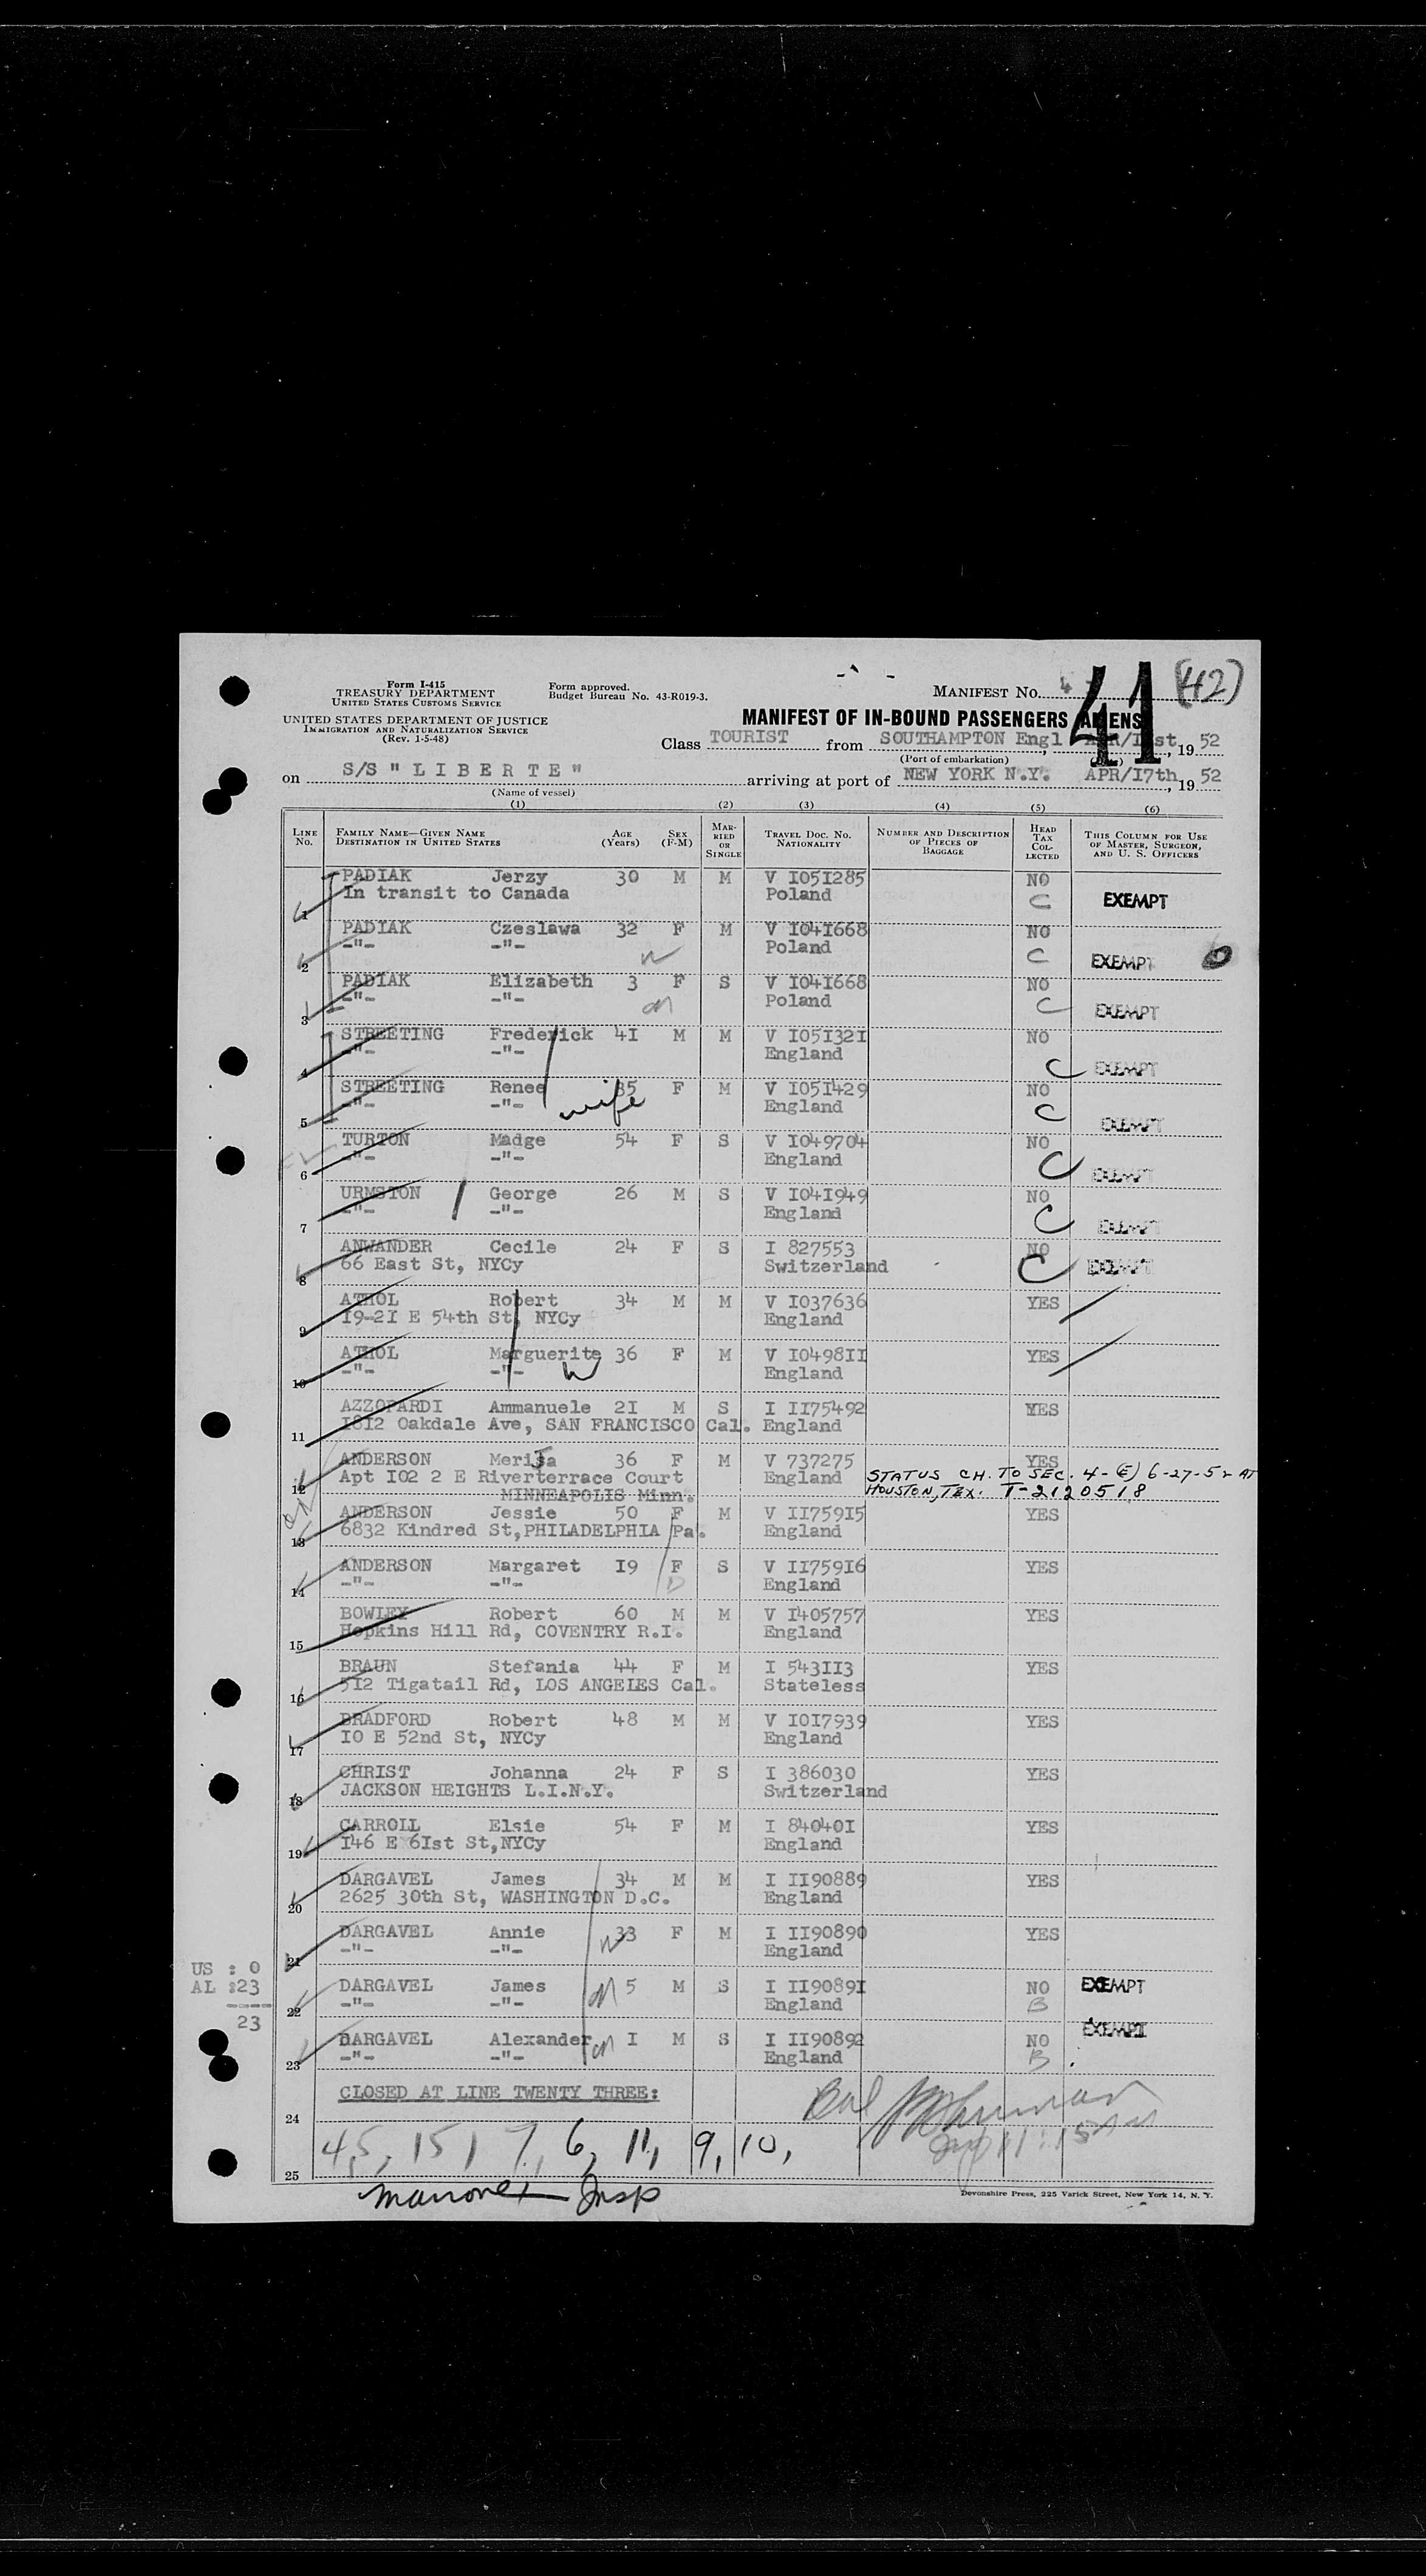 Form I-415
TREASURY DEPARTMENT
UNITED STATES CUSTOMS SERVICE
Form approved.
Budget Bureau No. 43-R019-3.
MANIFEST NO. 41 (42)
UNITED STATES DEPARTMENT OF JUSTICE
IMMIGRATION AND NATURALIZATION SERVICE
(Rev. 1-5-48)
MANIFEST OF IN-BOUND PASSENGERS (ALIENS)
Class TOURIST from SOUTHAMPTON Engl , 19 52
(Port of embarkation)
on S/S " L I B E R T E " arriving at port of NEW YORK N.Y. APR/I7th, 19 52
(Name of vessel)
(1) (2) (3) (4) (5) (6)
LINE No. FAMILY NAME—GIVEN NAME DESTINATION IN UNITED STATES AGE (Years) SEX (F-M) MARRIED OR SINGLE TRAVEL DOC. NO. NATIONALITY NUMBER AND DESCRIPTION OF PIECES OF BAGGAGE HEAD TAX COLLECTED THIS COLUMN FOR USE OF MASTER, SURGEON, AND U. S. OFFICERS
PADIAK Jerzy 30 M M V I05I285 NO
1 In transit to Canada Poland C EXEMPT
PADIAK Czeslawa 32 F M V I04I668 NO
2 -"- -"- W Poland C EXEMPT
PADIAK Elizabeth 3 F S V I04I668 NO
3 -"- -"- Poland C EXEMPT
STREETING Frederick 4I M M V I05I32I NO
4 -"- -"- England C EXEMPT
STREETING Renee 35 F M V I05I429 NO
5 -"- -"- wife England C EXEMPT
TURTON Madge 54 F S V I049704 NO
6 -"- -"- England C EXEMPT
URMSTON George 26 M S V I04I949 NO
7 -"- -"- England C EXEMPT
ANWANDER Cecile 24 F S I 827553 NO
8 66 East St, NYCy Switzerland C EXEMPT
ATHOL Robert 34 M M V I037636 YES
9 I9-2I E 54th St, NYCy England
ATHOL Marguerite 36 F M V I0498II YES
10 -"- -"- W England
AZZOPARDI Ammanuele 2I M S I II75492 YES
11 I8I2 Oakdale Ave, SAN FRANCISCO Cal. England
ANDERSON Merisa 36 F M V 737275 YES
12 Apt I02 2 E Riverterrace Court England STATUS CH. TO SEC. 4-(E) 6-27-52 AT
MINNEAPOLIS Minn. HOUSTON, TEX. T-2120518
ANDERSON Jessie 50 F M V II759I5 YES
13 6832 Kindred St,PHILADELPHIA Pa. England
ANDERSON Margaret I9 F S V II759I6 YES
14 -"- -"- D England
BOWLEY Robert 60 M M V I405757 YES
15 Hopkins Hill Rd, COVENTRY R.I. England
BRAUN Stefania 44 F M I 543II3 YES
16 5I2 Tigatail Rd, LOS ANGELES Cal. Stateless
BRADFORD Robert 48 M M V I0I7939 YES
17 I0 E 52nd St, NYCy England
CHRIST Johanna 24 F S I 386030 YES
18 JACKSON HEIGHTS L.I.N.Y. Switzerland
CARROLL Elsie 54 F M I 84040I YES
19 I46 E 6Ist St,NYCy England
DARGAVEL James 34 M M I II90889 YES
20 2625 30th St, WASHINGTON D.C. England
DARGAVEL Annie 33 F M I II90890 YES
21 -"- -"- W England
US : 0
AL :23
----
23
DARGAVEL James 5 M S I II9089I NO EXEMPT
22 -"- -"- England B
DARGAVEL Alexander I M S I II90892 NO EXEMPT
23 -"- -"- England B
CLOSED AT LINE TWENTY THREE:
24
25 4,5, 15, 7, 6, 11, 9, 10,
Insp
Devonshire Press, 225 Varick Street, New York 14, N. Y.